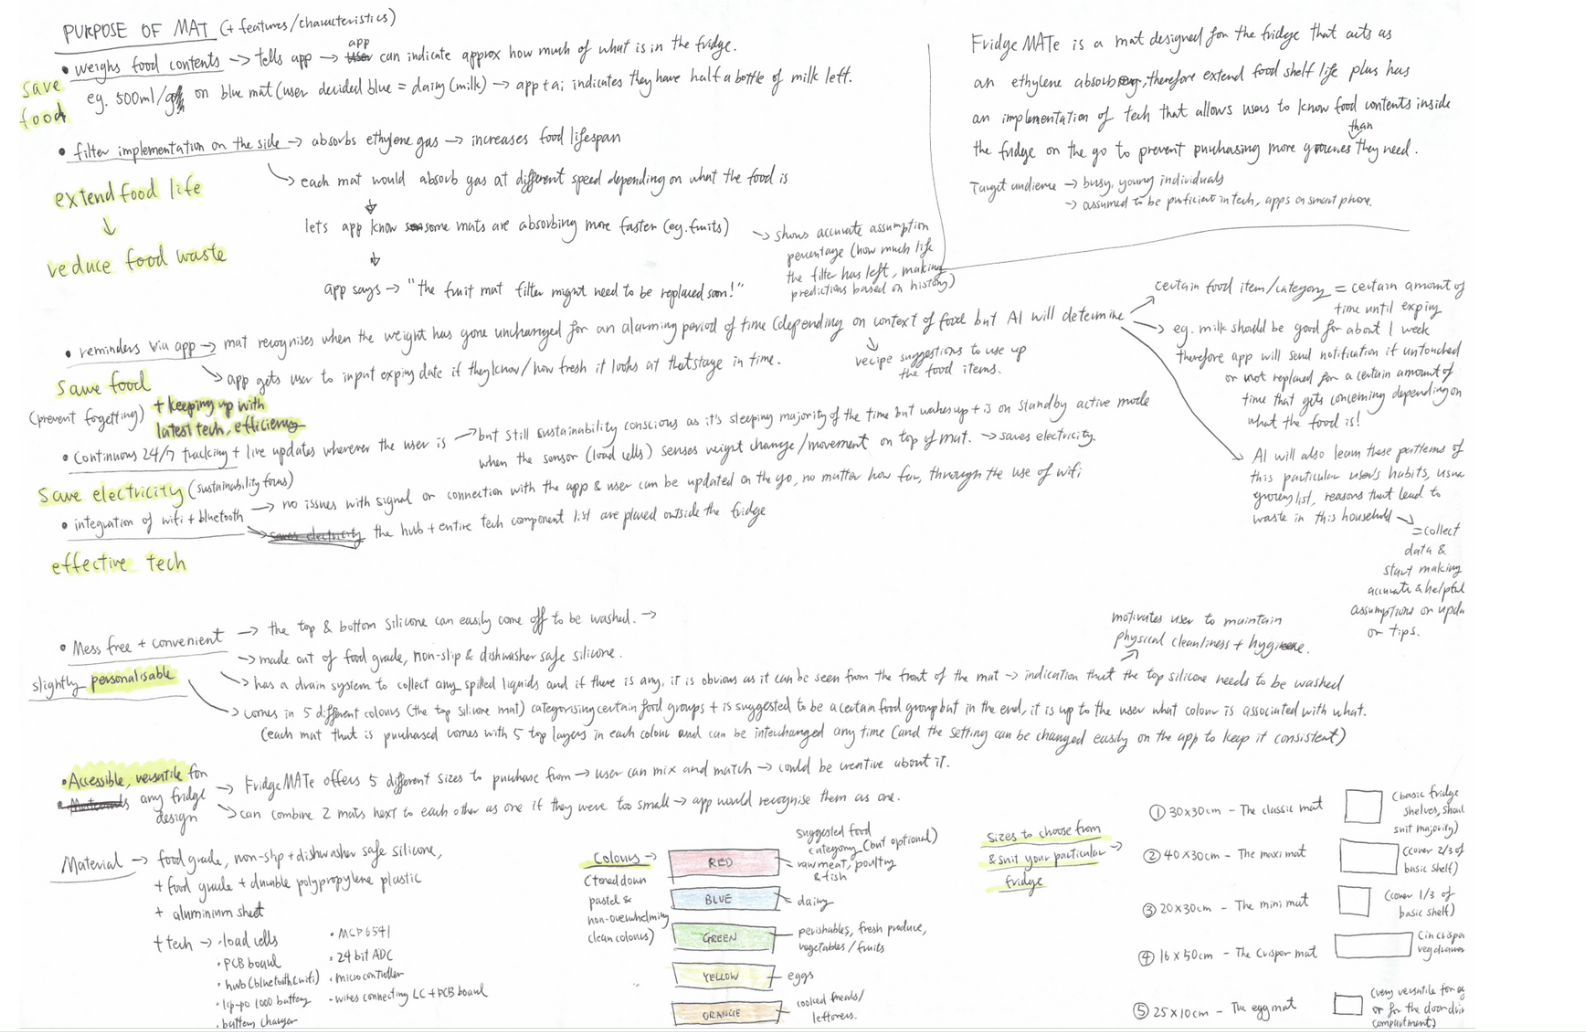 PURPOSE OF MAT (+ features/characteristics)
• weighs food contents → tells app → app can indicate approx how much of what is in the fridge.
save food
eg. 500ml/g on blue mat (user decided blue = dairy (milk) → app + ai indicates they have half a bottle of milk left.
• filter implementation on the side → absorbs ethylene gas → increases food lifespan
extend food life
↓
reduce food waste
→ each mat would absorb gas at different speed depending on what the food is
↓
lets app know some mats are absorbing more faster (eg. fruits)
→ shows accurate assumption
percentage (how much life
the filter has left, making
predictions based on history)
↓
app says → "the fruit mat filter might need to be replaced soon!"
FridgeMATe is a mat designed for the fridge that acts as
an ethylene absorber, therefore extend food shelf life plus has
an implementation of tech that allows users to know food contents inside
the fridge on the go to prevent purchasing more groceries than they need.
Target audience → busy, young individuals
→ assumed to be proficient in tech, apps on smart phone.
• reminders via app → mat recognises when the weight has gone unchanged for an alarming period of time (depending on context of food but AI will determine
→ recipe suggestions to use up
the food items.
→ app gets user to input expiry date if they know/how fresh it looks at that stage in time.
save food
(prevent forgetting)
+ keeping up with
latest tech, efficiency
certain food item/category = certain amount of
time until expiry
→ eg. milk should be good for about 1 week
therefore app will send notification if untouched
or not replaced for a certain amount of
time that gets concerning depending on
what the food is!
AI will also learn these patterns of
this particular user's habits, usual
grocery list, reasons that lead to
waste in this household →
= collect
data &
start making
accurate & helpful
assumptions or upda
or tips.
• Continuous 24/7 tracking + live updates wherever the user is → but still sustainability conscious as it's sleeping majority of the time but wakes up + is on standby active mode
when the sensor (load cells) senses weight change/movement on top of mat. → saves electricity
save electricity (sustainability focus)
• integration of wifi + bluetooth → no issues with signal or connection with the app & user can be updated on the go, no matter how far, through the use of wifi
→ the hub + entire tech component list are placed outside the fridge
effective tech
• Mess free + convenient → the top & bottom silicone can easily come off to be washed. →
slightly personalisable
→ made out of food grade, non-slip & dishwasher safe silicone.
→ has a drain system to collect any spilled liquids and if there is any, it is obvious as it can be seen from the front of the mat → indication that the top silicone needs to be washed
motivates user to maintain
physical cleanliness + hygiene.
→ comes in 5 different colours (the top silicone mat) categorising certain food groups + is suggested to be a certain food group but in the end, it is up to the user what colour is associated with what.
(each mat that is purchased comes with 5 top layers in each colour and can be interchanged any time (and the setting can be changed easily on the app to keep it consistent)
• Accessible, versatile for
any fridge
design
→ FridgeMATe offers 5 different sizes to purchase from → user can mix and match → could be creative about it.
→ can combine 2 mats next to each other as one if they were too small → app would recognise them as one.
Material → food grade, non-slip + dishwasher safe silicone,
+ food grade + durable polypropylene plastic
+ aluminium sheet
+ tech → • load cells
• PCB board
• hub (bluetooth (wifi)
• lip-po 1000 battery
• battery charger
• MCP6541
• 24 bit ADC
• microcontroller
• wires connecting LC + PCB board
Colours →
(toned down
pastel &
non-overwhelming
clean colours)
suggested food
category (but optional)
RED
raw meat, poultry
& fish
BLUE
dairy
GREEN
perishables, fresh produce,
vegetables/fruits
YELLOW
eggs
ORANGE
cooked meals/
leftovers.
Sizes to choose from
& suit your particular →
fridge
① 30x30cm - The classic mat
(basic fridge
shelves, shoul
suit majority)
② 40x30cm - The maxi mat
(cover 2/3 of
basic shelf)
③ 20x30cm - The mini mat
(cover 1/3 of
basic shelf)
④ 16x50cm - The Crisper mat
(in crisper
veg drawer
⑤ 25x10cm - The egg mat
(very versatile for
or for the door
compartment)